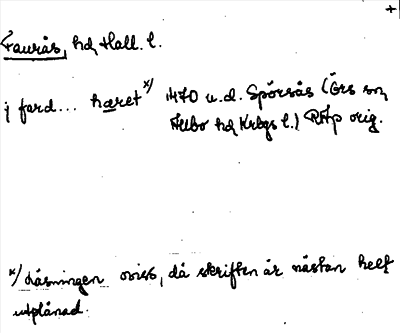 +
Faurås, hd, Hall. l.
j fard... hæret x/ 1470 u.d. Spörsås (Örs sn,
Albo hd, Krbgs l.) RAp orig.
x/ Läsningen oviss, då skriften är nästan helt
utplånad.